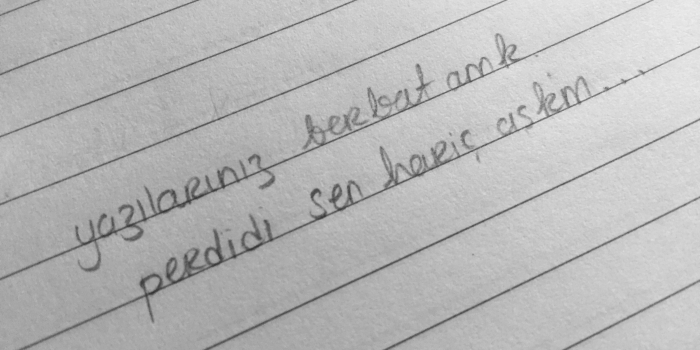 yazılarınız berbat amk
perdidi sen hariç aşkım...